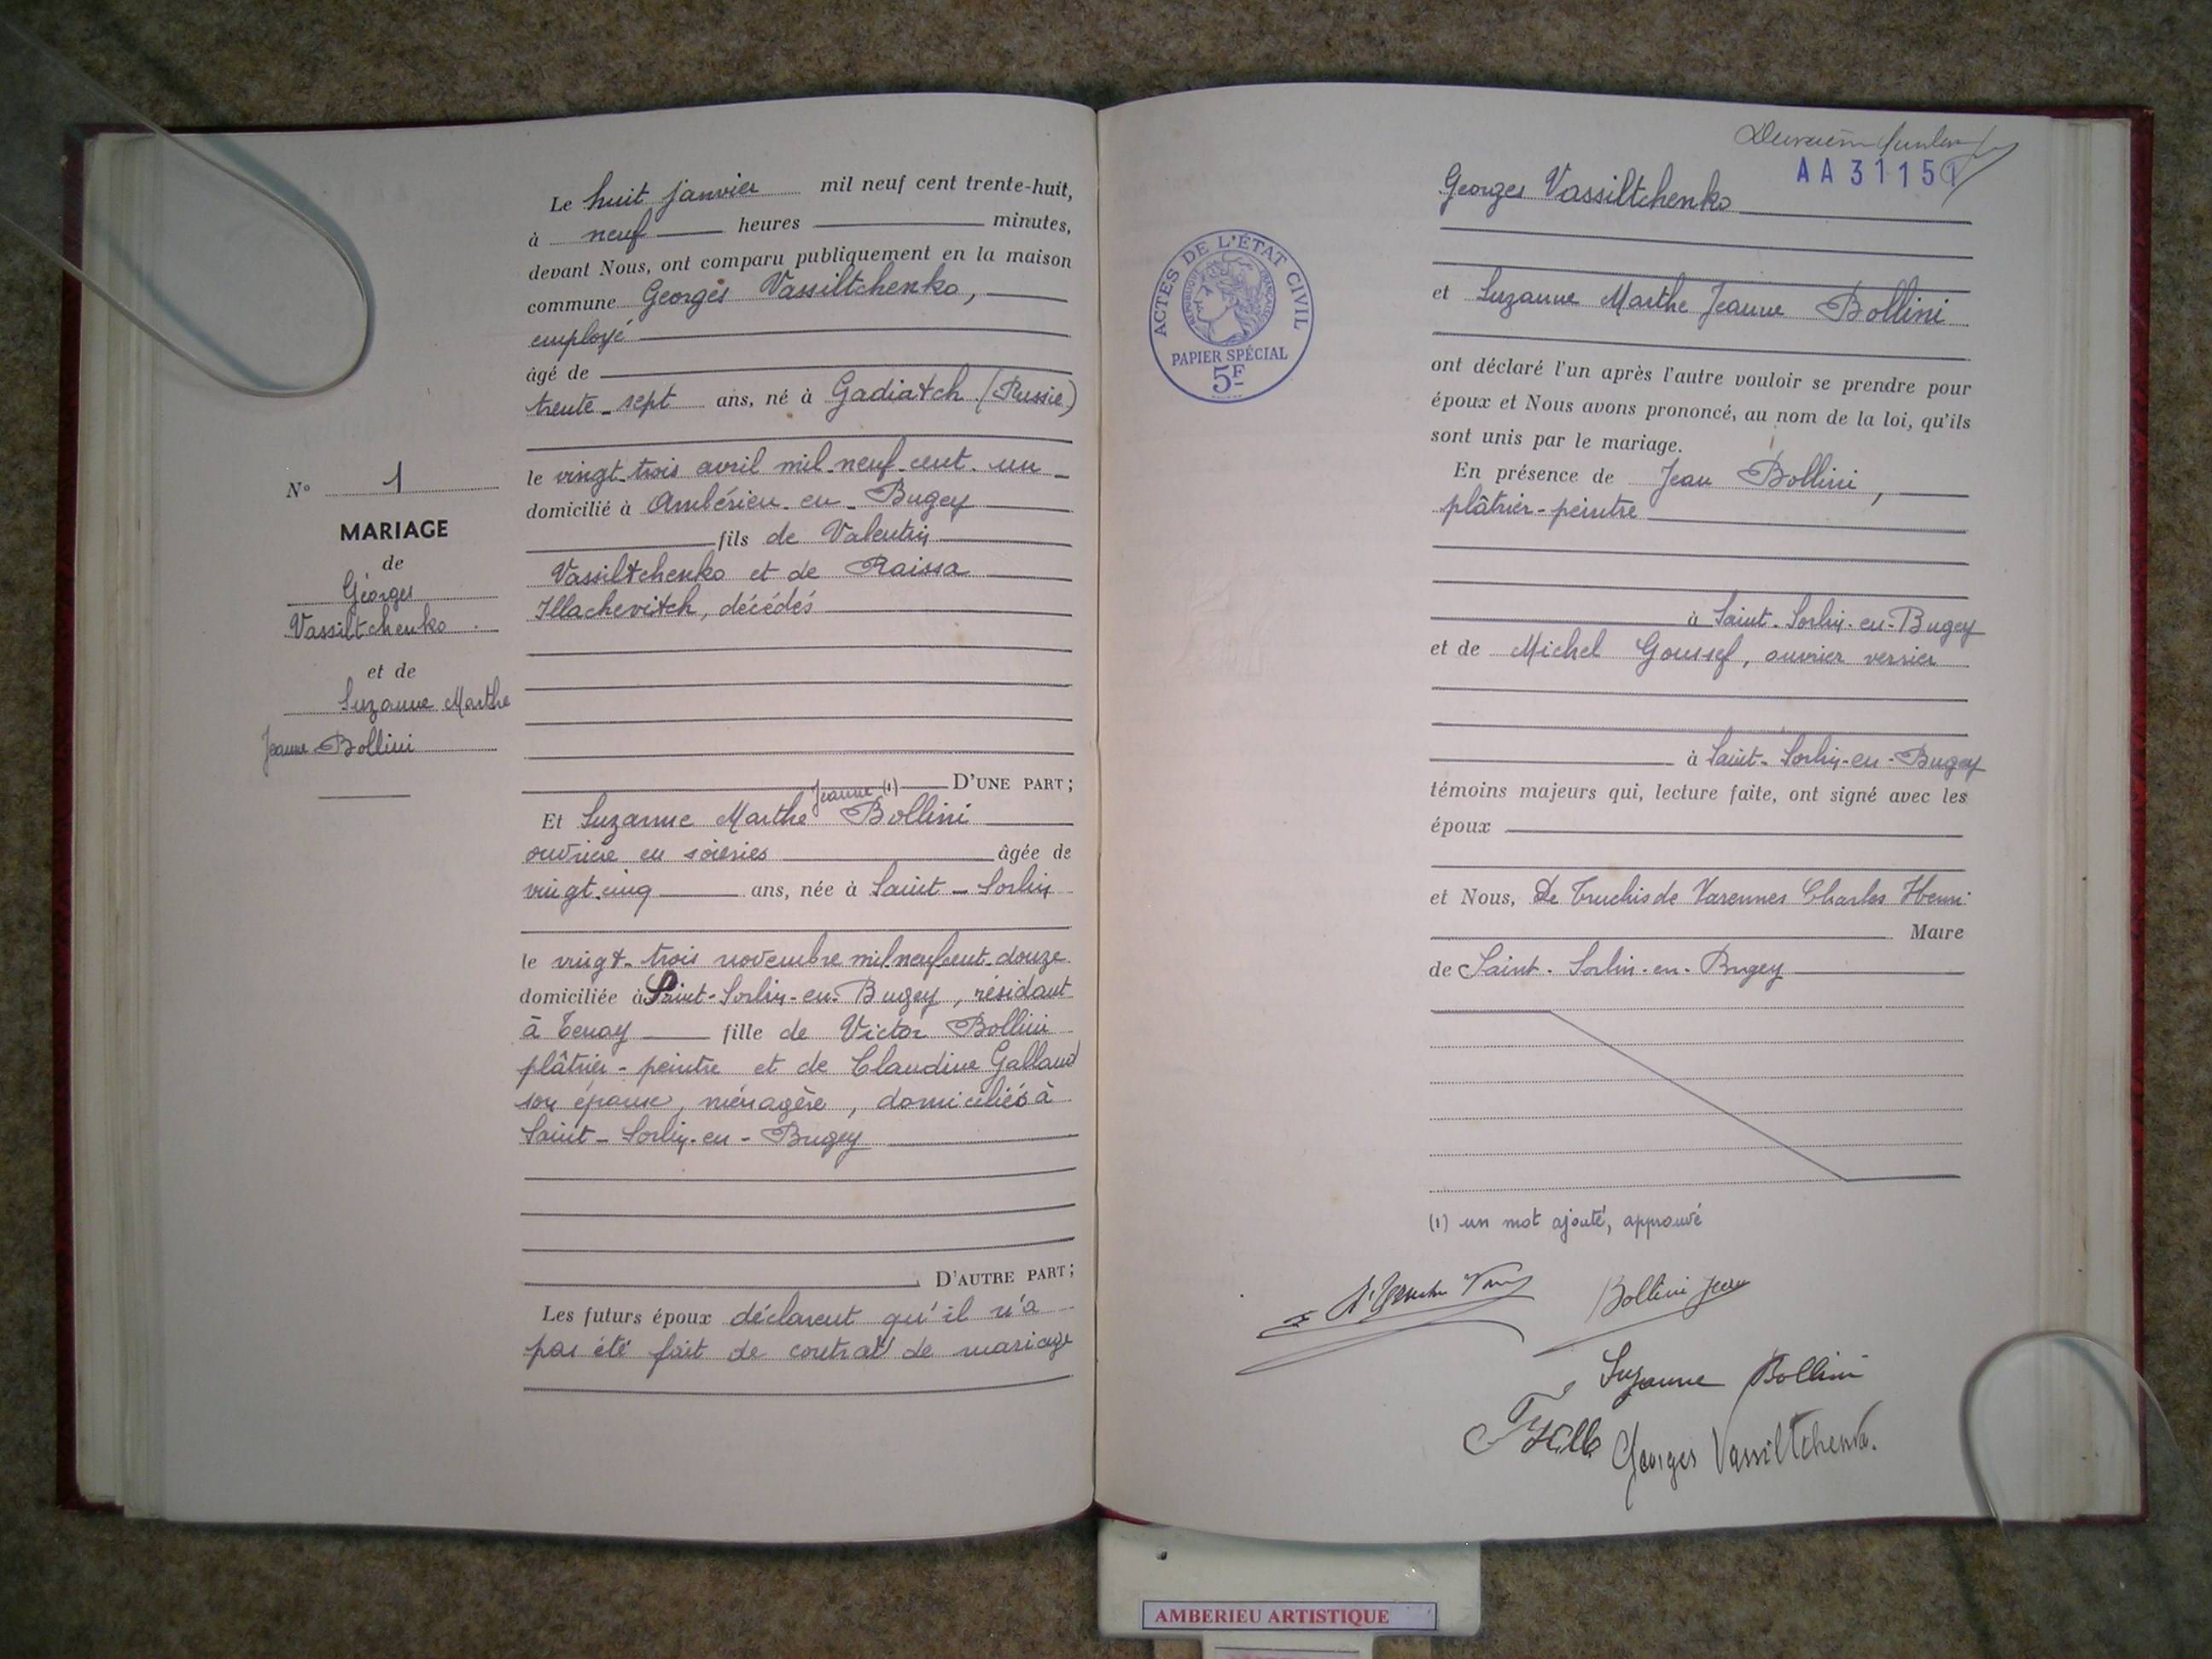 N° 1
MARIAGE
de
Géorges
Vassiltchenko
et de
Suzanne Marthe
Jeanne Bollini
Le huit janvier mil neuf cent trente-huit,
à neuf heures minutes,
devant Nous, ont comparu publiquement en la maison
commune Georges Vassiltchenko,
employé
âgé de
trente-sept ans, né à Gadiatch (Russie)
le vingt-trois avril mil-neuf-cent-un
domicilié à Ambérieu-en-Bugey
fils de Valentin
Vassiltchenko et de Raissa
Illachevitch, décédés
D'UNE PART;
Jeanne (1)
Et Suzanne Marthe Bollini
ouvrière en soieries âgée de
vingt-cinq ans, née à Saint-Sorlin
le vingt-trois novembre mil-neuf-cent-douze
domiciliée à Saint-Sorlin-en-Bugey, résidant
à Tenay fille de Victor Bollini
plâtrier-peintre et de Claudine Galland
son épouse, ménagère, domiciliés à
Saint-Sorlin-en-Bugey
D'AUTRE PART;
Les futurs époux déclarent qu'il n'a
pas été fait de contrat de mariage
ACTES DE L'ÉTAT CIVIL
RÉPUBLIQUE FRANÇAISE
PAPIER SPÉCIAL
5F
AA 31151
Georges Vassiltchenko
et Suzanne Marthe Jeanne Bollini
ont déclaré l'un après l'autre vouloir se prendre pour
époux et Nous avons prononcé, au nom de la loi, qu'ils
sont unis par le mariage.
En présence de Jean Bollini,
plâtrier-peintre
à Saint-Sorlin-en-Bugey
et de Michel Goussef, ouvrier verrier
à Saint-Sorlin-en-Bugey
témoins majeurs qui, lecture faite, ont signé avec les
époux
et Nous, De Truchis de Varennes Charles Henri
Maire
de Saint-Sorlin-en-Bugey
(1) un mot ajouté, approuvé
Bollini Jean
Suzanne Bollini
Georges Vassiltchenko.
AMBERIEU ARTISTIQUE